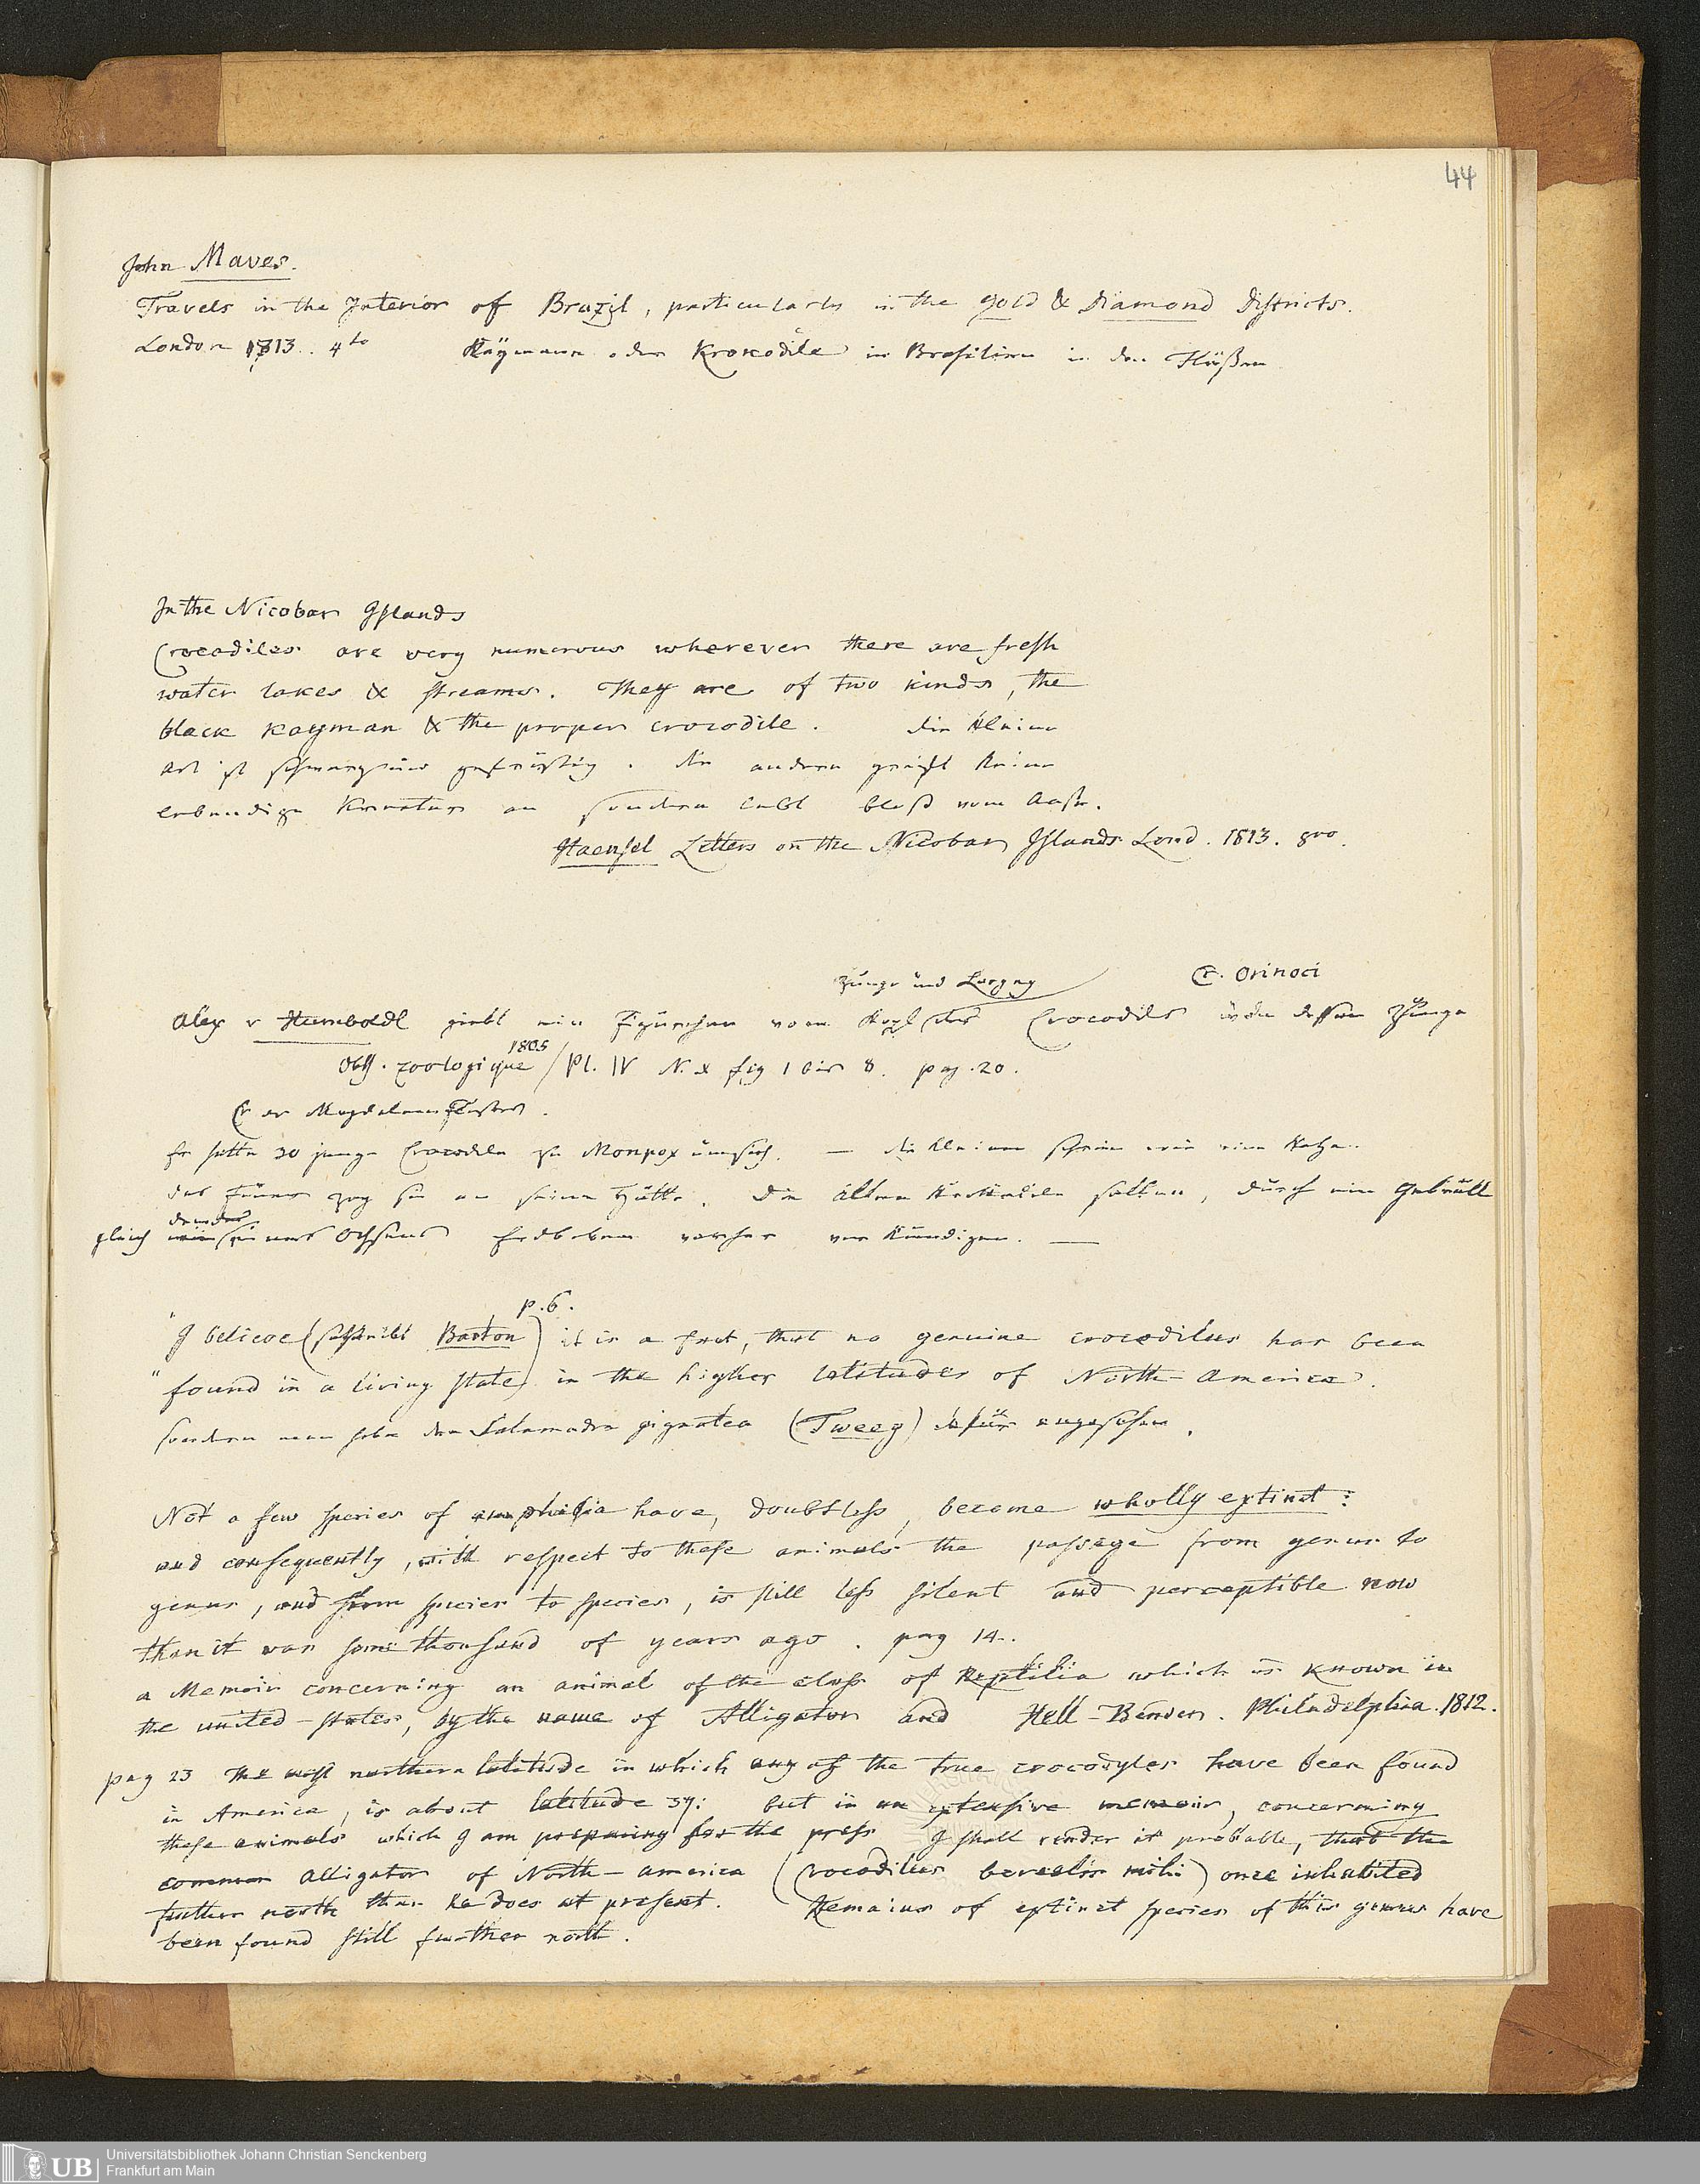 44
John Maves.
Travels in the Interior off Brazil, particularly in the gold & Diamond Districts.
London 1813. 4to Kaÿmann oder Krokodile in Brasilien in den Flüßen
In the Nicobar Islands
Crocadiles are very numerous wherever there are fresh
water lakes & streams. They are of two kinds, the
black kayman & the proper crocodile. die kleine
Art ist schwarz und gefräßig. die andere greift keine
lebendige Kreatur an sondern lebt bloß vom Aaße.
Haensel Letters on the Nicobar Islands Lond. 1813. 8vo.
Zunge und Larynx Cr. Orinoci
Alex v Humboldt giebt eine Figur vom Kopf des Crocodils dessen Zunge
Obs. zoologique 1805 / Pl. IV N. X fig 1 bis 8. pag. 20.
Cr er Magdalenen
Er hatte 30 junge Crocodile zu Monpox um sich. — die kleinen schrein wie eine Katze.
das Feuer zog sie an seine Hütte. Die alten Krokodile sollen, durch ein Gebrüll
gleich eines Ochsens Erdbeben vorher verkündigen. —
p. 6.
"I believe (schreibt Barton) it is a fact, that no genuine crocodilus has been
"found in a living state, in the higher latitudes of North-America.
sondern man habe den Salamadra gigantea (Tweeg) dafür angesehen.
Not a few species of amphibia have, doubtless, become wholly extinct:
and consequently, with respect to these animals the passage from genus to
genus, and from species to species, is still less silent and perceptible now
than it was some thousand of years ago. pag 14.
a Memoir concerning an animal of the class of Reptilia which is known in
the united-states, by the name of Alligator and Hell-Bender. Philadelphia. 1812.
pag 23 The most northern latitude in which any of the true crocodyles have been found
in America, is about latitude 37: but in an extensive memoir, concerning
these animals which I am preparing for the press I shall render it probable, that the
common alligator of North-america (Crocodilus mihi) once inhabited
further north than he does at present. Remains of extinct species of this genus have
been found still further north.
Universitätsbibliothek Johann Christian Senckenberg
UB Frankfurt am Main